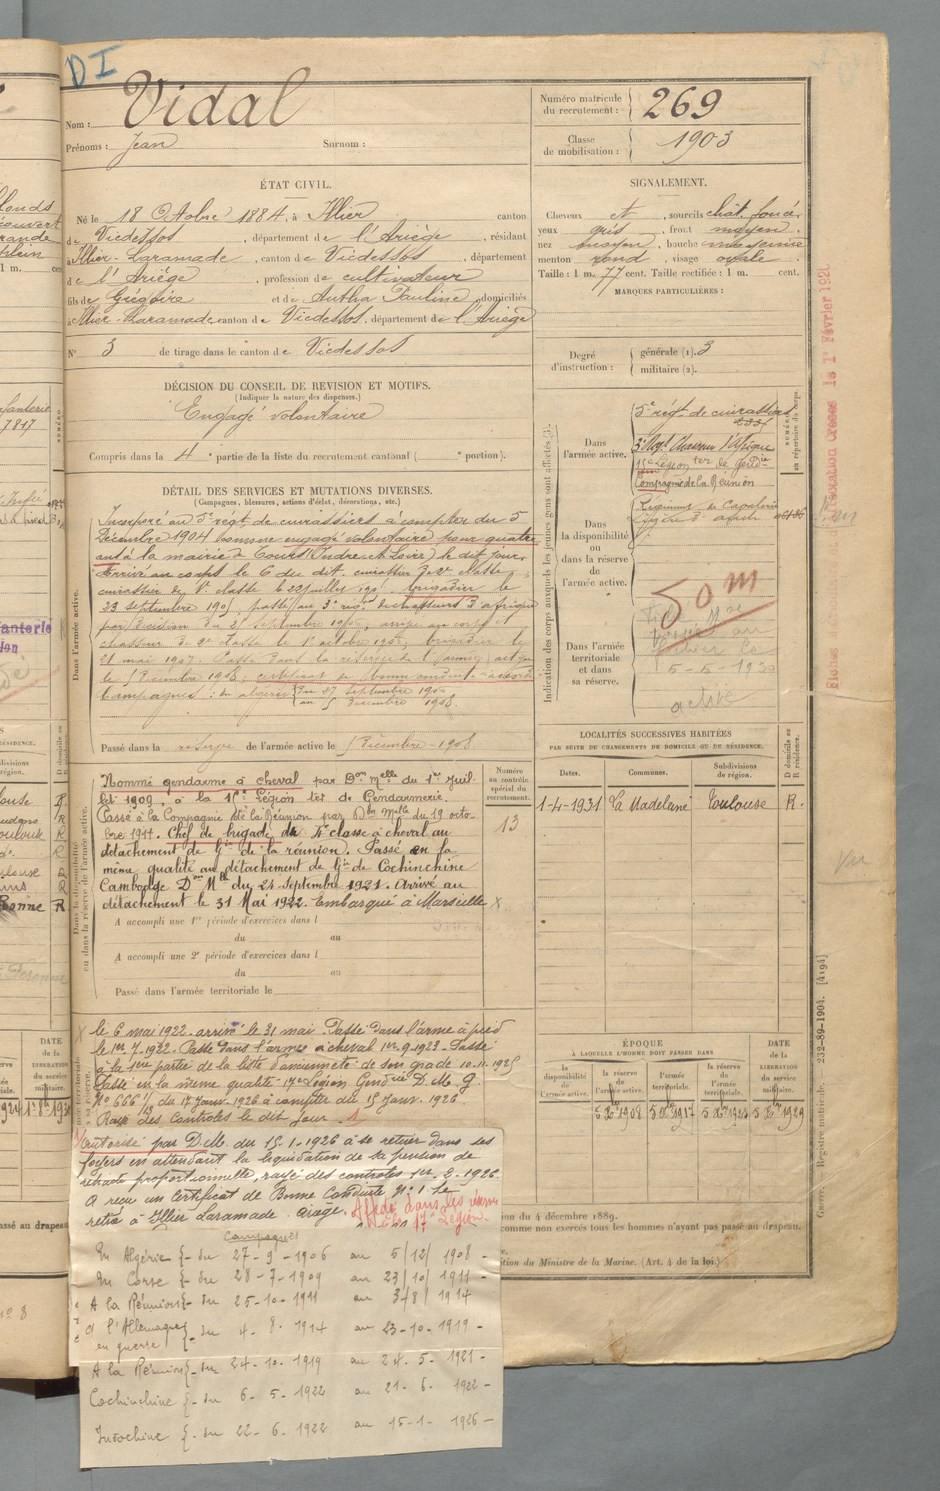 DI
Nom : Vidal
Prénoms : Jean Surnom :
Numéro matricule du recrutement : 269
Classe de mobilisation : 1903
ÉTAT CIVIL.
Né le 18 Octobre 1884, à Illier canton
de Vicdessos, département de l'Ariège, résidant
à Illier-Laramade, canton de Vicdessos, département
de l'Ariège, profession de cultivateur
fils de Grégoire et de Autha Pauline, domiciliés
à Illier-Laramade, canton de Vicdessos, département de l'Ariège
N° 3 de tirage dans le canton de Vicdessos
SIGNALEMENT.
Cheveux et , sourcils chât. foncé
yeux gris , front moyen
nez moyen, bouche moyenne
menton rond, visage ovale.
Taille : 1 m. 77 cent. Taille rectifiée : 1 m. cent.
MARQUES PARTICULIÈRES :
Degré d'instruction : générale (1). 3
militaire (2).
DÉCISION DU CONSEIL DE REVISION ET MOTIFS.
(Indiquer la nature des dispenses.)
Engagé volontaire
Compris dans la 4e partie de la liste du recrutement cantonal ( e portion).
DÉTAIL DES SERVICES ET MUTATIONS DIVERSES.
(Campagnes, blessures, actions d'éclat, décorations, etc.)
Dans l'armée active.
Incorporé au 5e régt de cuirassiers à compter du 5
Décembre 1904 comme engagé volontaire pour quatre
ans à la mairie de Tours (Indre et Loire) le dit jour.
Arrivé au corps le 6 du dit. cuirassier de 2e classe
cuirassier de 1e classe le 22 juillet brigadier le
23 septembre passé au 3e régt de chasseurs d'afrique
par décision du 21 Septembre arrivé au corps et
chasseur de 2e classe le 1e octobre brigadier le
21 mai 1907. Passé dans la réserve de l'armée active
le 5 Décembre 1908, certificat de bonne conduite accordé
Campagnes : en algérie du 27 Septembre
au 5 décembre 1908.
Passé dans la réserve de l'armée active le 5 Décembre 1908
Indication des corps auxquels les jeunes gens sont affectés (3).
NUMÉRO au répertoire du corps
Dans l'armée active.
5e régt de cuirassiers
3e Régt Chasseurs d'Afrique
15e Légion ter de Gendie
Compagnie de la Réunion
Dans la disponibilité ou dans la réserve de l'armée active.
50 M
Dans l'armée territoriale et dans sa réserve.
5-5-1930
active
LOCALITÉS SUCCESSIVES HABITÉES
PAR SUITE DE CHANGEMENTS DE DOMICILE OU DE RÉSIDENCE.
D domicile ou R résidence.
Dates. Communes. Subdivisions de région.
1-4-1931 La Madelane Toulouse R.
Dans la disponibilité ou dans la réserve de l'armée active.
Numéro au contrôle spécial du recrutement.
13
Nommé gendarme à cheval par Don Melle du 1er Juil
let 1909, à la 15e Légion ter de Gendarmerie.
Passé à la Compagnie de la Réunion par Don Melle du 19 octo-
bre 1911. Chef de brigade de 4e classe à cheval au
détachement de Gie de la réunion. Passé en la
même qualité au détachement de Gie de Cochinchine
Cambodge Don Mlle du 24 Septembre 1921. Arrivé au
détachement le 31 Mai 1922. Embarqué à Marseille X
A accompli une 1re période d'exercices dans l
du au
A accompli une 2e période d'exercices dans l
du au
Passé dans l'armée territoriale le
X le 6 mai 1922. arrivé le 31 mai. Passé dans l'arme à pied
le 1er-7-1922. Passé dans l'armes à cheval 1er-9-1923. Passé
à la 1ère partie de la liste d'ancienneté de son grade 10.11.1925
Passé en la même qualité 17e Légion Gendrie D.M. G.
N° 666 du 17 Janv. 1926 à compter du 15 Janv. 1926
Rayé des Contrôles le dit jour. 1
ÉPOQUE
À LAQUELLE L'HOMME DOIT PASSER DANS
la disponibilité de l'armée active.
la réserve de l'armée active.
l'armée territoriale.
la réserve de l'armée territoriale.
DATE de la LIBÉRATION du service militaire.
5 Xbre 1908 5 Xbre 1917 5 Xbre 1923 5 Xbre 1929
1/ Autorisé par D.M. du 15-1-1926 à se retirer dans ses
foyers en attendant la liquidation de sa pension de
retraite proportionnelle, rayé des contrôles 1er-8-1926.
A reçu un Certificat de Bonne Conduite N° 1. Se
retire à Illier Laramade. Ariège. Affecté dans les réserves
de la 17e Légion.
Campagnes
En Algérie - du 27-9-1906 au 5/12/1908 -
En Corse - du 28-7-1909 au 23/10/1911 -
A la Réunion - du 25-10-1911 au 3/8/1914
C. l'Allemagne - du 4-8-1914 au 23-10-1919 -
en guerre
A la Réunion - du 24-10-1919 au 24-5-1921 -
Cochinchine - du 6-5-1922 au 21-6-1922 -
Indochine - du 22-6-1922 au 15-1-1926 -
ion du 4 décembre 1889.
comme non exercés tous les hommes n'ayant pas passé au drapeau.
ition du Ministre de la Marine. (Art. 4 de la loi.)
Guerre. Registre matricule. 232-89-1904. [4194]